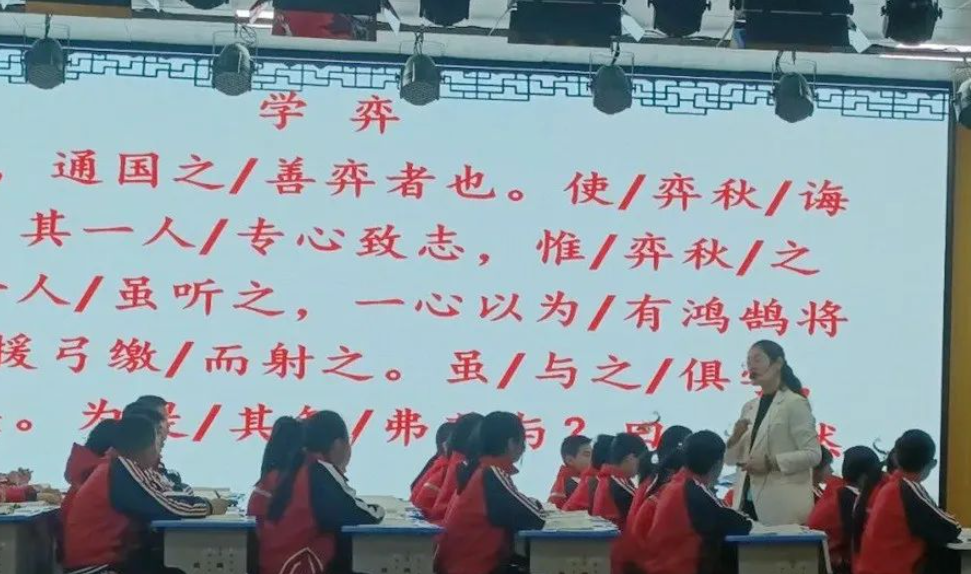 学 弈
，通国之/善弈者也。使/弈秋/诲
其一人/专心致志，惟/弈秋/之
人/虽听之，一心以为/有鸿鹄将
援弓缴/而射之。虽/与之/俱
。为是/其 /弗 与？曰 然